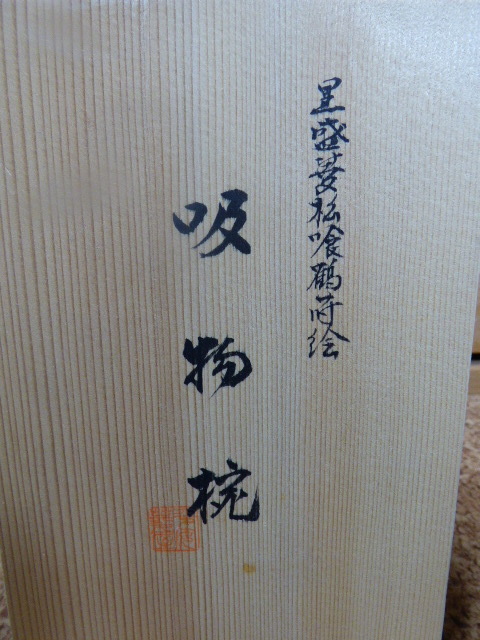 黒盛菱松喰鶴蒔絵
吸物椀